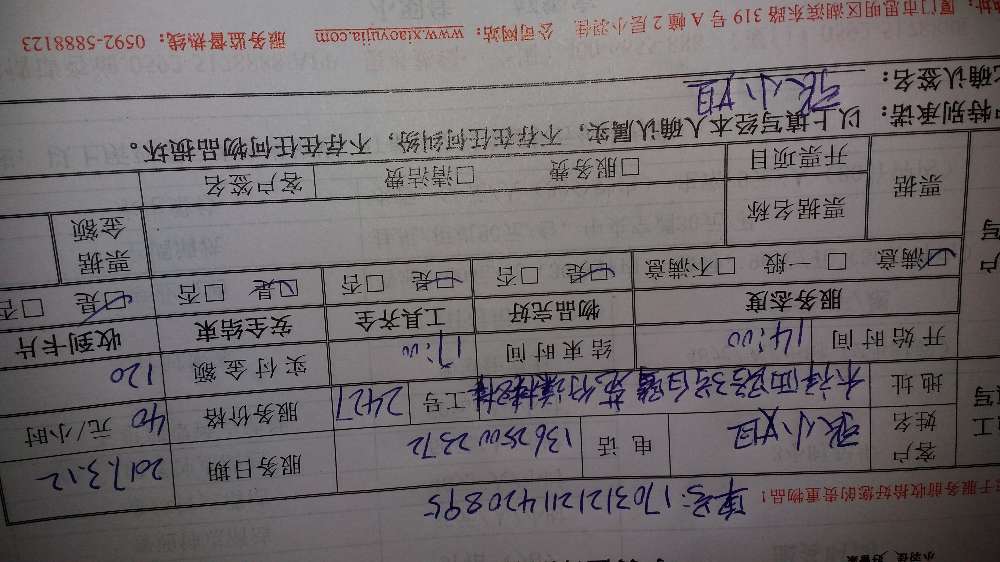 小羽佳_好管家
于服务前收拾好您的贵重物品！
单号:1703121211420895
客户姓名 张小姐 电话 13625002372 服务日期 2017.3.12
地址 工号 2427 服务价格 40 元/小时
开始时间 14:00 结束时间 17:00 实付金额 120
服务态度 物品完好 工具齐全 安全结束 收到卡片
☑满意 □一般 □不满意 ☑是 □否 ☑是 □否 ☑是 □否 ☑是 □否
票据 票据名称 票据金额
开票项目 □服务费 □清洁费 客户签名
特别承诺：以上填写经本人确认属实，不存在任何纠纷，不存在任何物品损坏。
确认签名： 张小姐
地址：厦门市思明区湖滨东路 319 号 A 幢 2 层小羽佳 公司网站：www.xiaoyujia.com 服务监督热线：0592-5888123